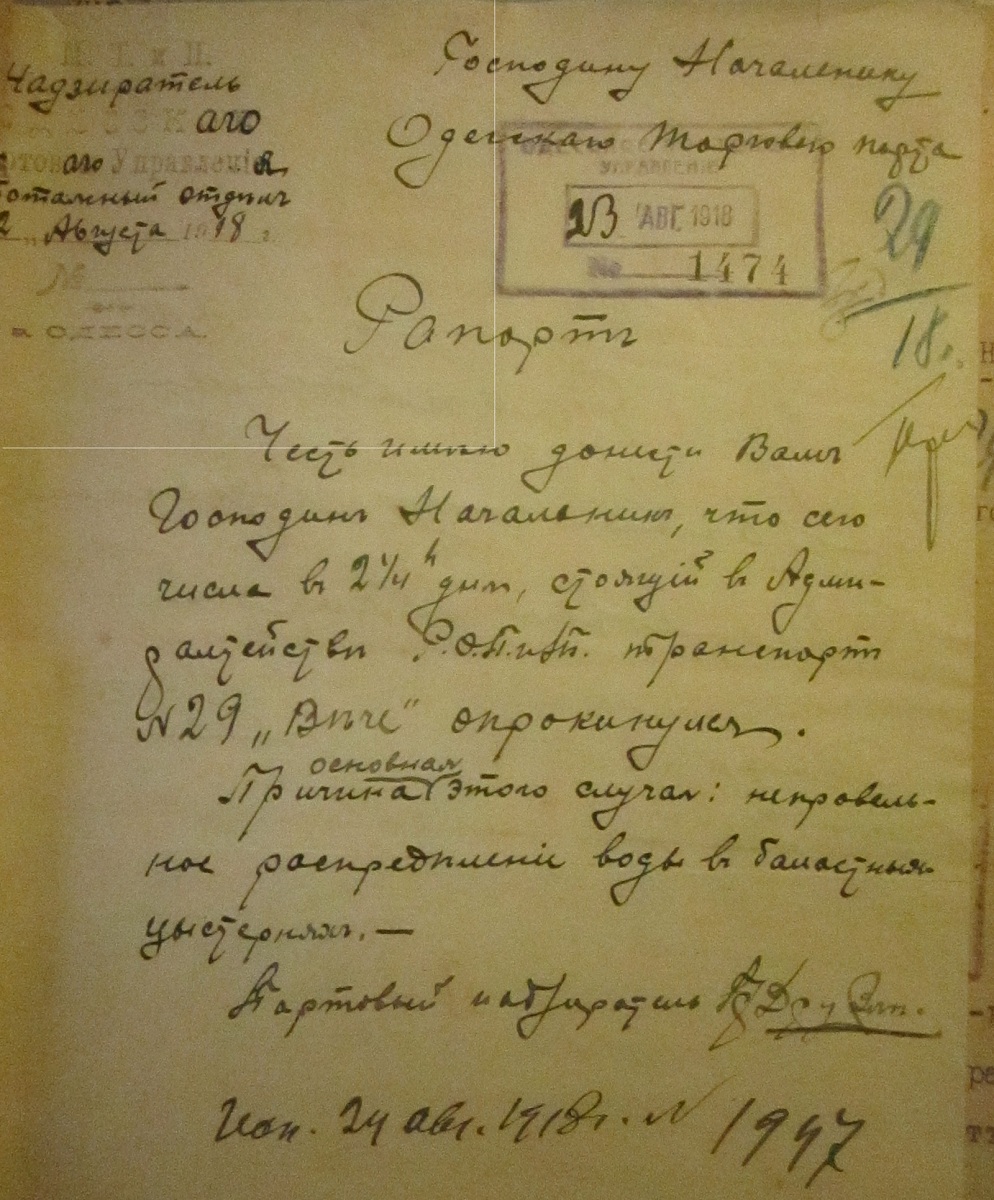 М. Т. и П.
Надзиратель
ОДЕССКаго
Портоваго Управленія
Каботажный отдѣлъ
2 „ Августа 1918 г.
№
г. ОДЕССА.
Господину Начальнику
Одесскаго Торговаго порта
УПРАВЛЕНІЕ
23 АВГ. 1918
№ 1474
29
18.
Рапортъ
Честь имѣю донести Вамъ
Господинъ Начальникъ, что сего
числа въ 2 1/4 h дня, стоящій въ Адми-
ралтействѣ Р.О.П.иТ. транспортъ
N 29 „Вѣче" опрокинулся.
основная
Причина этого случая: неправель-
ное распредѣленіе воды въ баластныхъ
цыстернахъ. —
Портовый надзиратель
Исп. 24 авг. 1918 г. N 1947